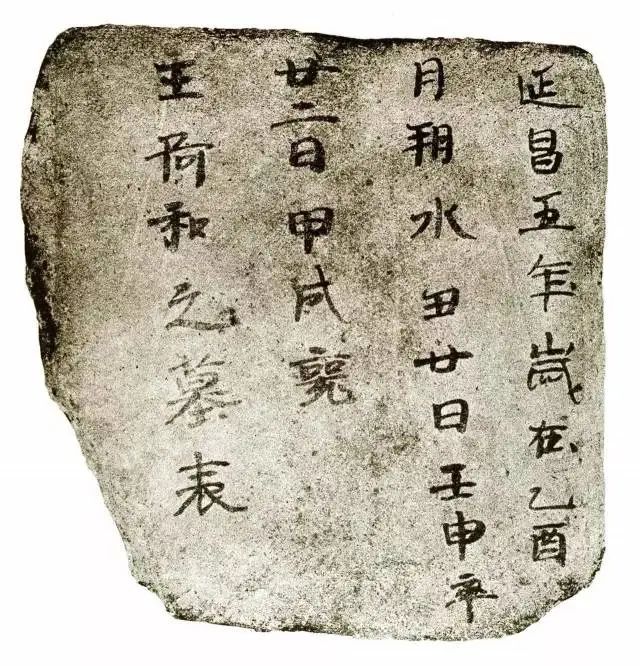 延昌五年歲在乙酉
月朔水丑廿日壬申卒
廿二日甲戌喪
王阿和之墓表